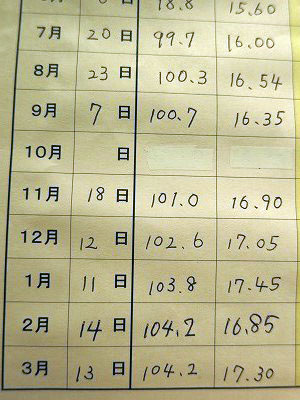 日 18.8 15.60
7月 20日 99.7 16.00
8月 23日 100.3 16.54
9月 7日 100.7 16.35
10月 日
11月 18日 101.0 16.90
12月 12日 102.6 17.05
1月 11日 103.8 17.45
2月 14日 104.2 16.85
3月 13日 104.2 17.30